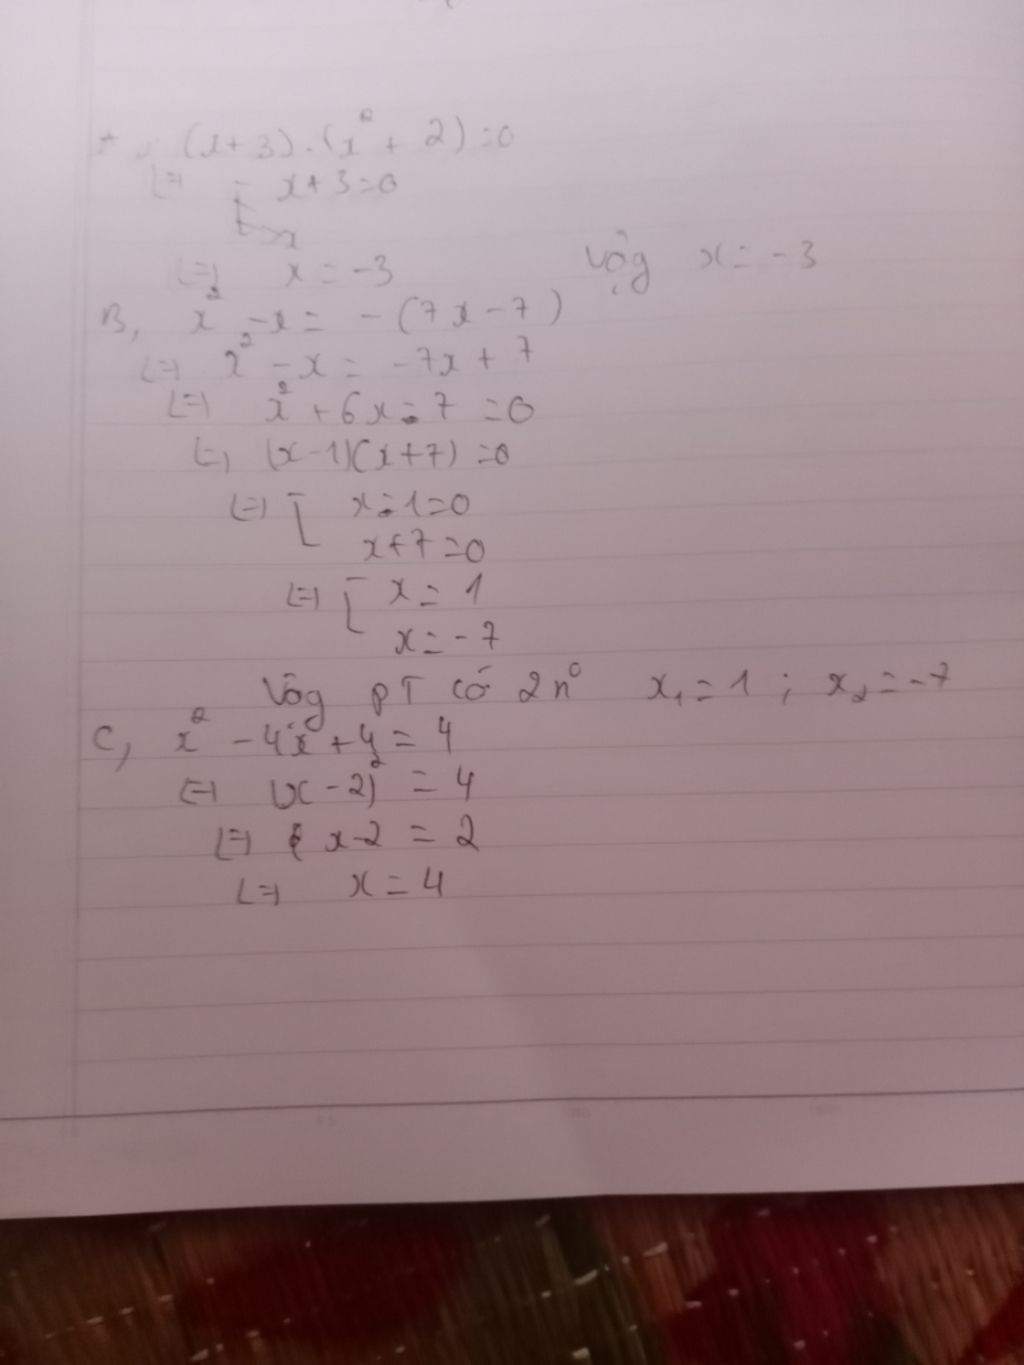 (x+3).(x² + 2)=0
⇔ [ x+3=0
x
⇔ x = -3   Vậy x = -3
B, x² - x = - (7x - 7)
⇔ x² - x = -7x + 7
⇔ x² + 6x - 7 = 0
⇔ (x-1)(x+7) = 0
⇔ [ x - 1 = 0
x + 7 = 0
⇔ [ x = 1
x = -7
Vậy PT có 2 n° x₁ = 1 ; x₂ = -7
C, x² - 4x + 4 = 4
⇔ (x - 2)² = 4
⇔ x - 2 = 2
⇔ x = 4